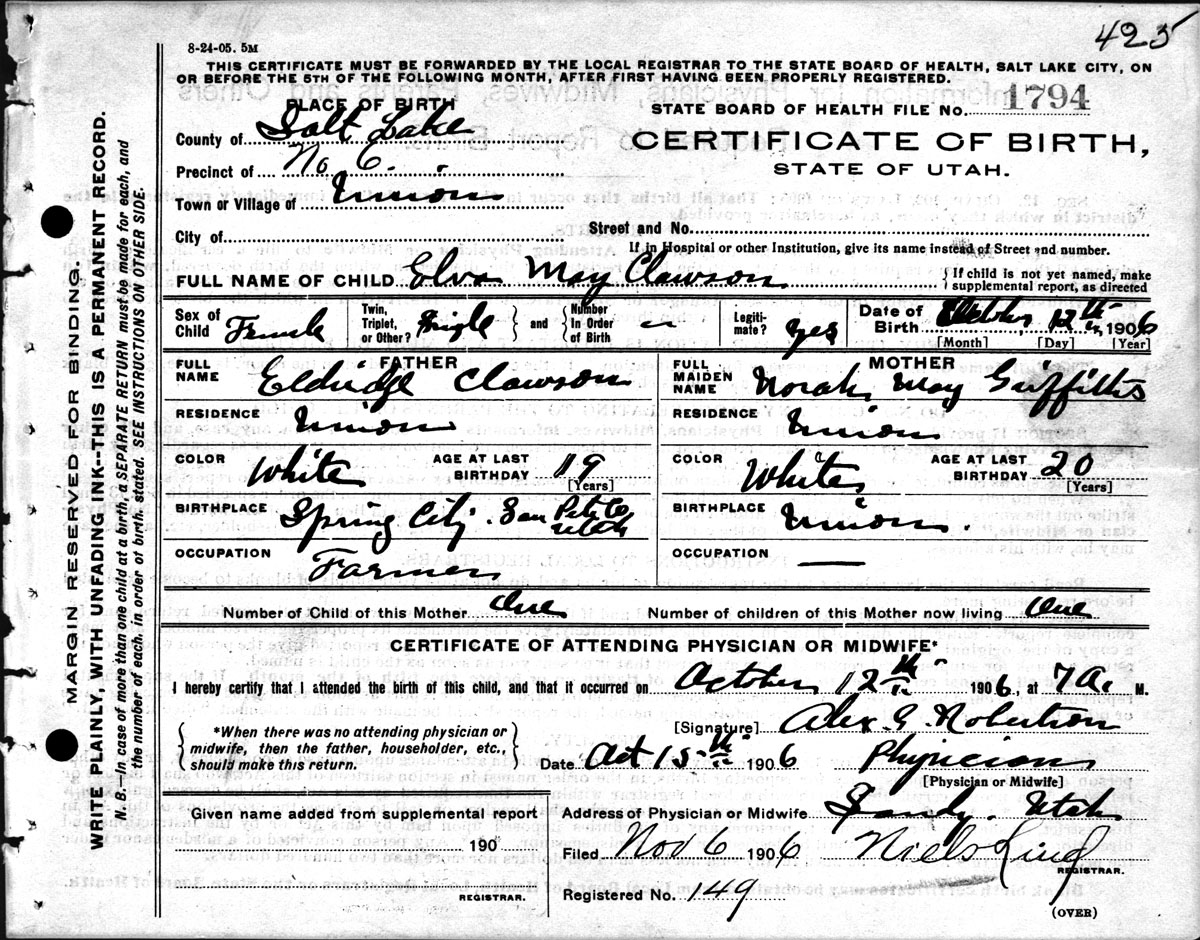 425
8-24-05. 5M
THIS CERTIFICATE MUST BE FORWARDED BY THE LOCAL REGISTRAR TO THE STATE BOARD OF HEALTH, SALT LAKE CITY, ON
OR BEFORE THE 5TH OF THE FOLLOWING MONTH, AFTER FIRST HAVING BEEN PROPERLY REGISTERED.
PLACE OF BIRTH
STATE BOARD OF HEALTH FILE No. 1794
County of Salt Lake
CERTIFICATE OF BIRTH,
Precinct of No 6.
STATE OF UTAH.
Town or Village of Union
City of
Street and No.
If in Hospital or other Institution, give its name instead of Street and number.
FULL NAME OF CHILD Elva May Clawson { If child is not yet named, make supplemental report, as directed
Sex of Child Female Twin, Triplet, or Other? Single } and { Number In Order of Birth — Legiti-mate? Yes Date of Birth October 12th 1906
[Month] [Day] [Year]
FATHER
MOTHER
FULL NAME Eldridge Clawson
FULL MAIDEN NAME Norah May Griffiths
RESIDENCE Union
RESIDENCE Union
COLOR White AGE AT LAST BIRTHDAY 19 [Years]
COLOR White AGE AT LAST BIRTHDAY 20 [Years]
BIRTHPLACE Spring City. San Pete Co Utah
BIRTHPLACE Union.
OCCUPATION Farmer
OCCUPATION —
Number of Child of this Mother One Number of children of this Mother now living One
CERTIFICATE OF ATTENDING PHYSICIAN OR MIDWIFE*
I hereby certify that I attended the birth of this child, and that it occurred on October 12th 1906, at 7 A. M.
{ *When there was no attending physician or midwife, then the father, householder, etc., should make this return. }
[Signature] Alex. G. Robertson
Date Oct 15th 1906 Physician
[Physician or Midwife]
Given name added from supplemental report
190
REGISTRAR.
Address of Physician or Midwife Sandy. Utah
Filed Nov 6 1906 Niels Lind
REGISTRAR.
Registered No. 149
(OVER)
MARGIN RESERVED FOR BINDING.
WRITE PLAINLY, WITH UNFADING INK--THIS IS A PERMANENT RECORD.
N. B.—In case of more than one child at a birth, a SEPARATE RETURN must be made for each, and
the number of each, in order of birth, stated. SEE INSTRUCTIONS ON OTHER SIDE.